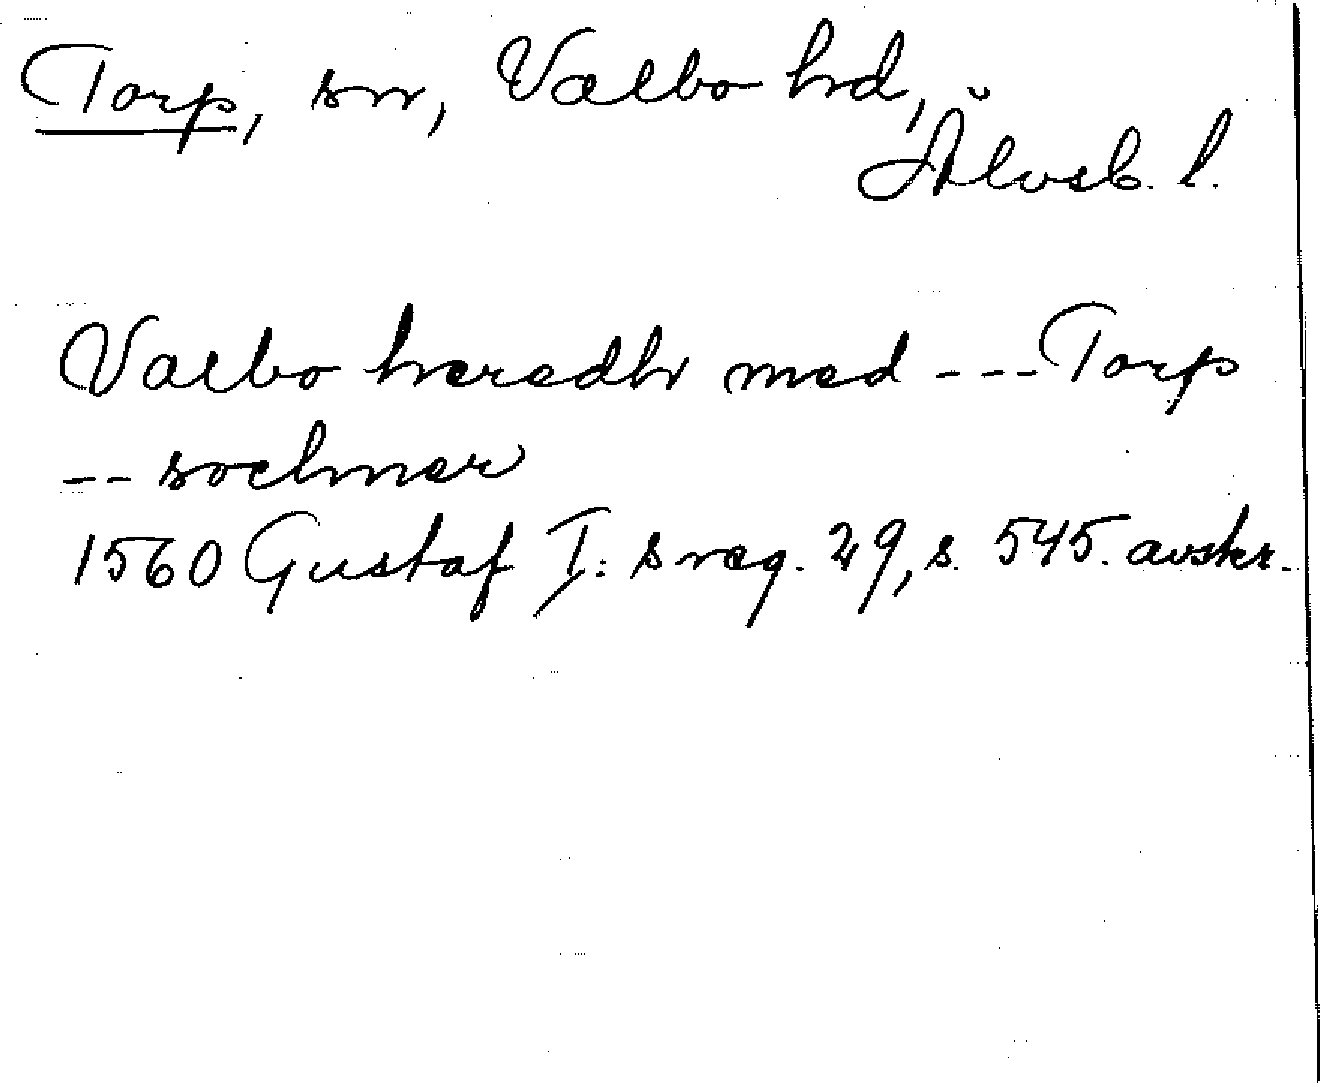 Torp, sn, Valbo hd,
Älvsb. l.
Valbo heredh med --- Torp
-- sochner
1560 Gustaf I:s reg. 29, s. 545. avskr.